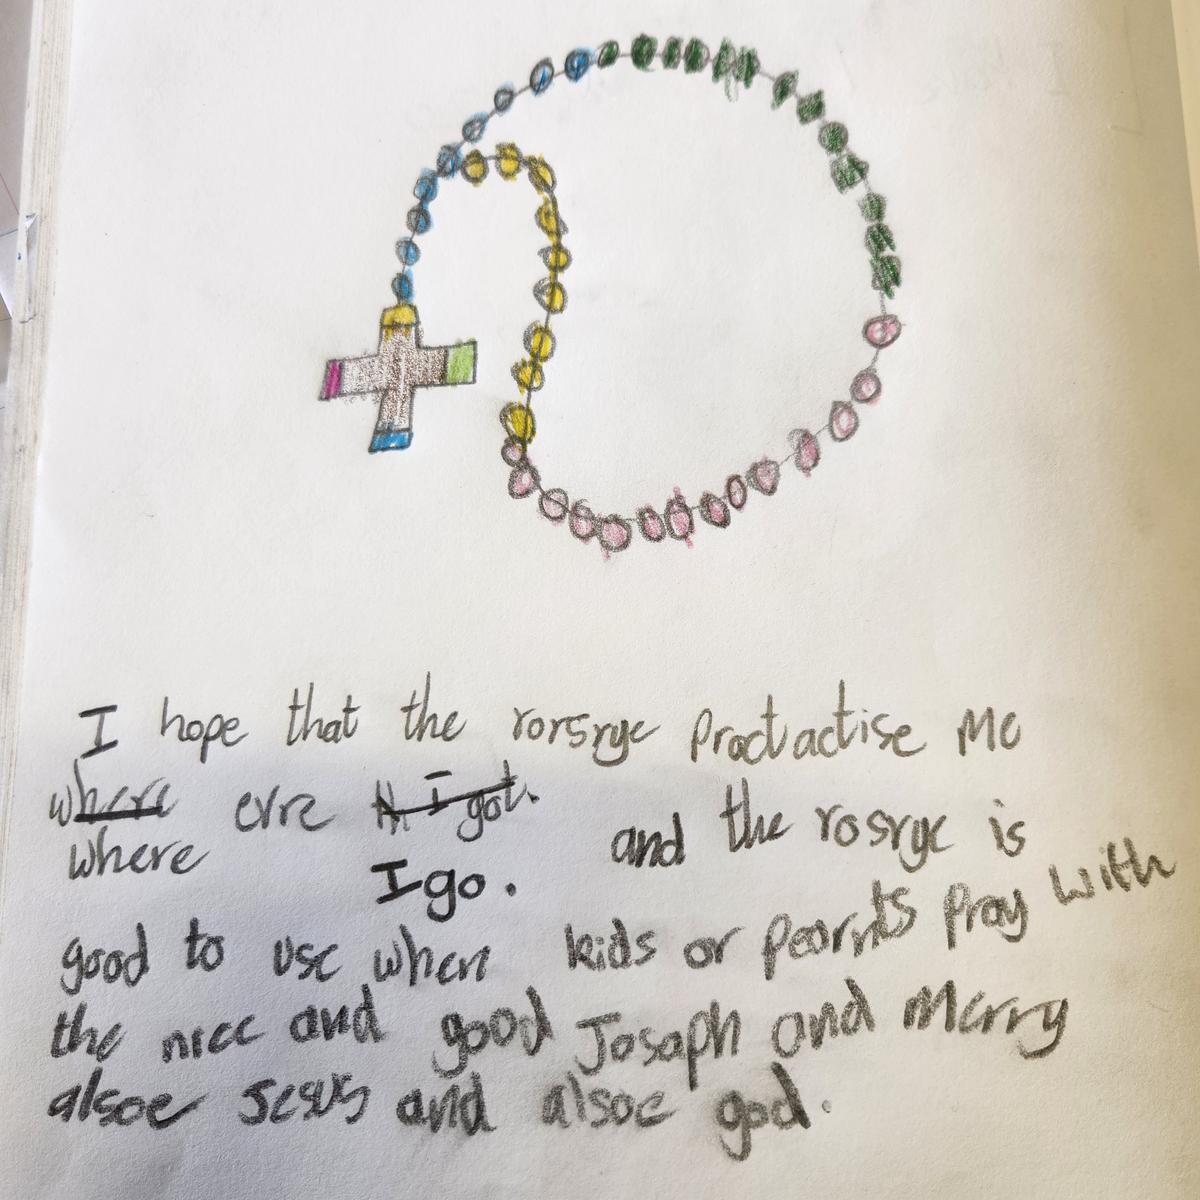 I hope that the rorsrye Proctactise Me
where evre I got.
where I go. and the rosrye is
good to use when kids or pearnts Pray with
the nice and good Josaph and Merry
alsoe Jesus and alsoe god.